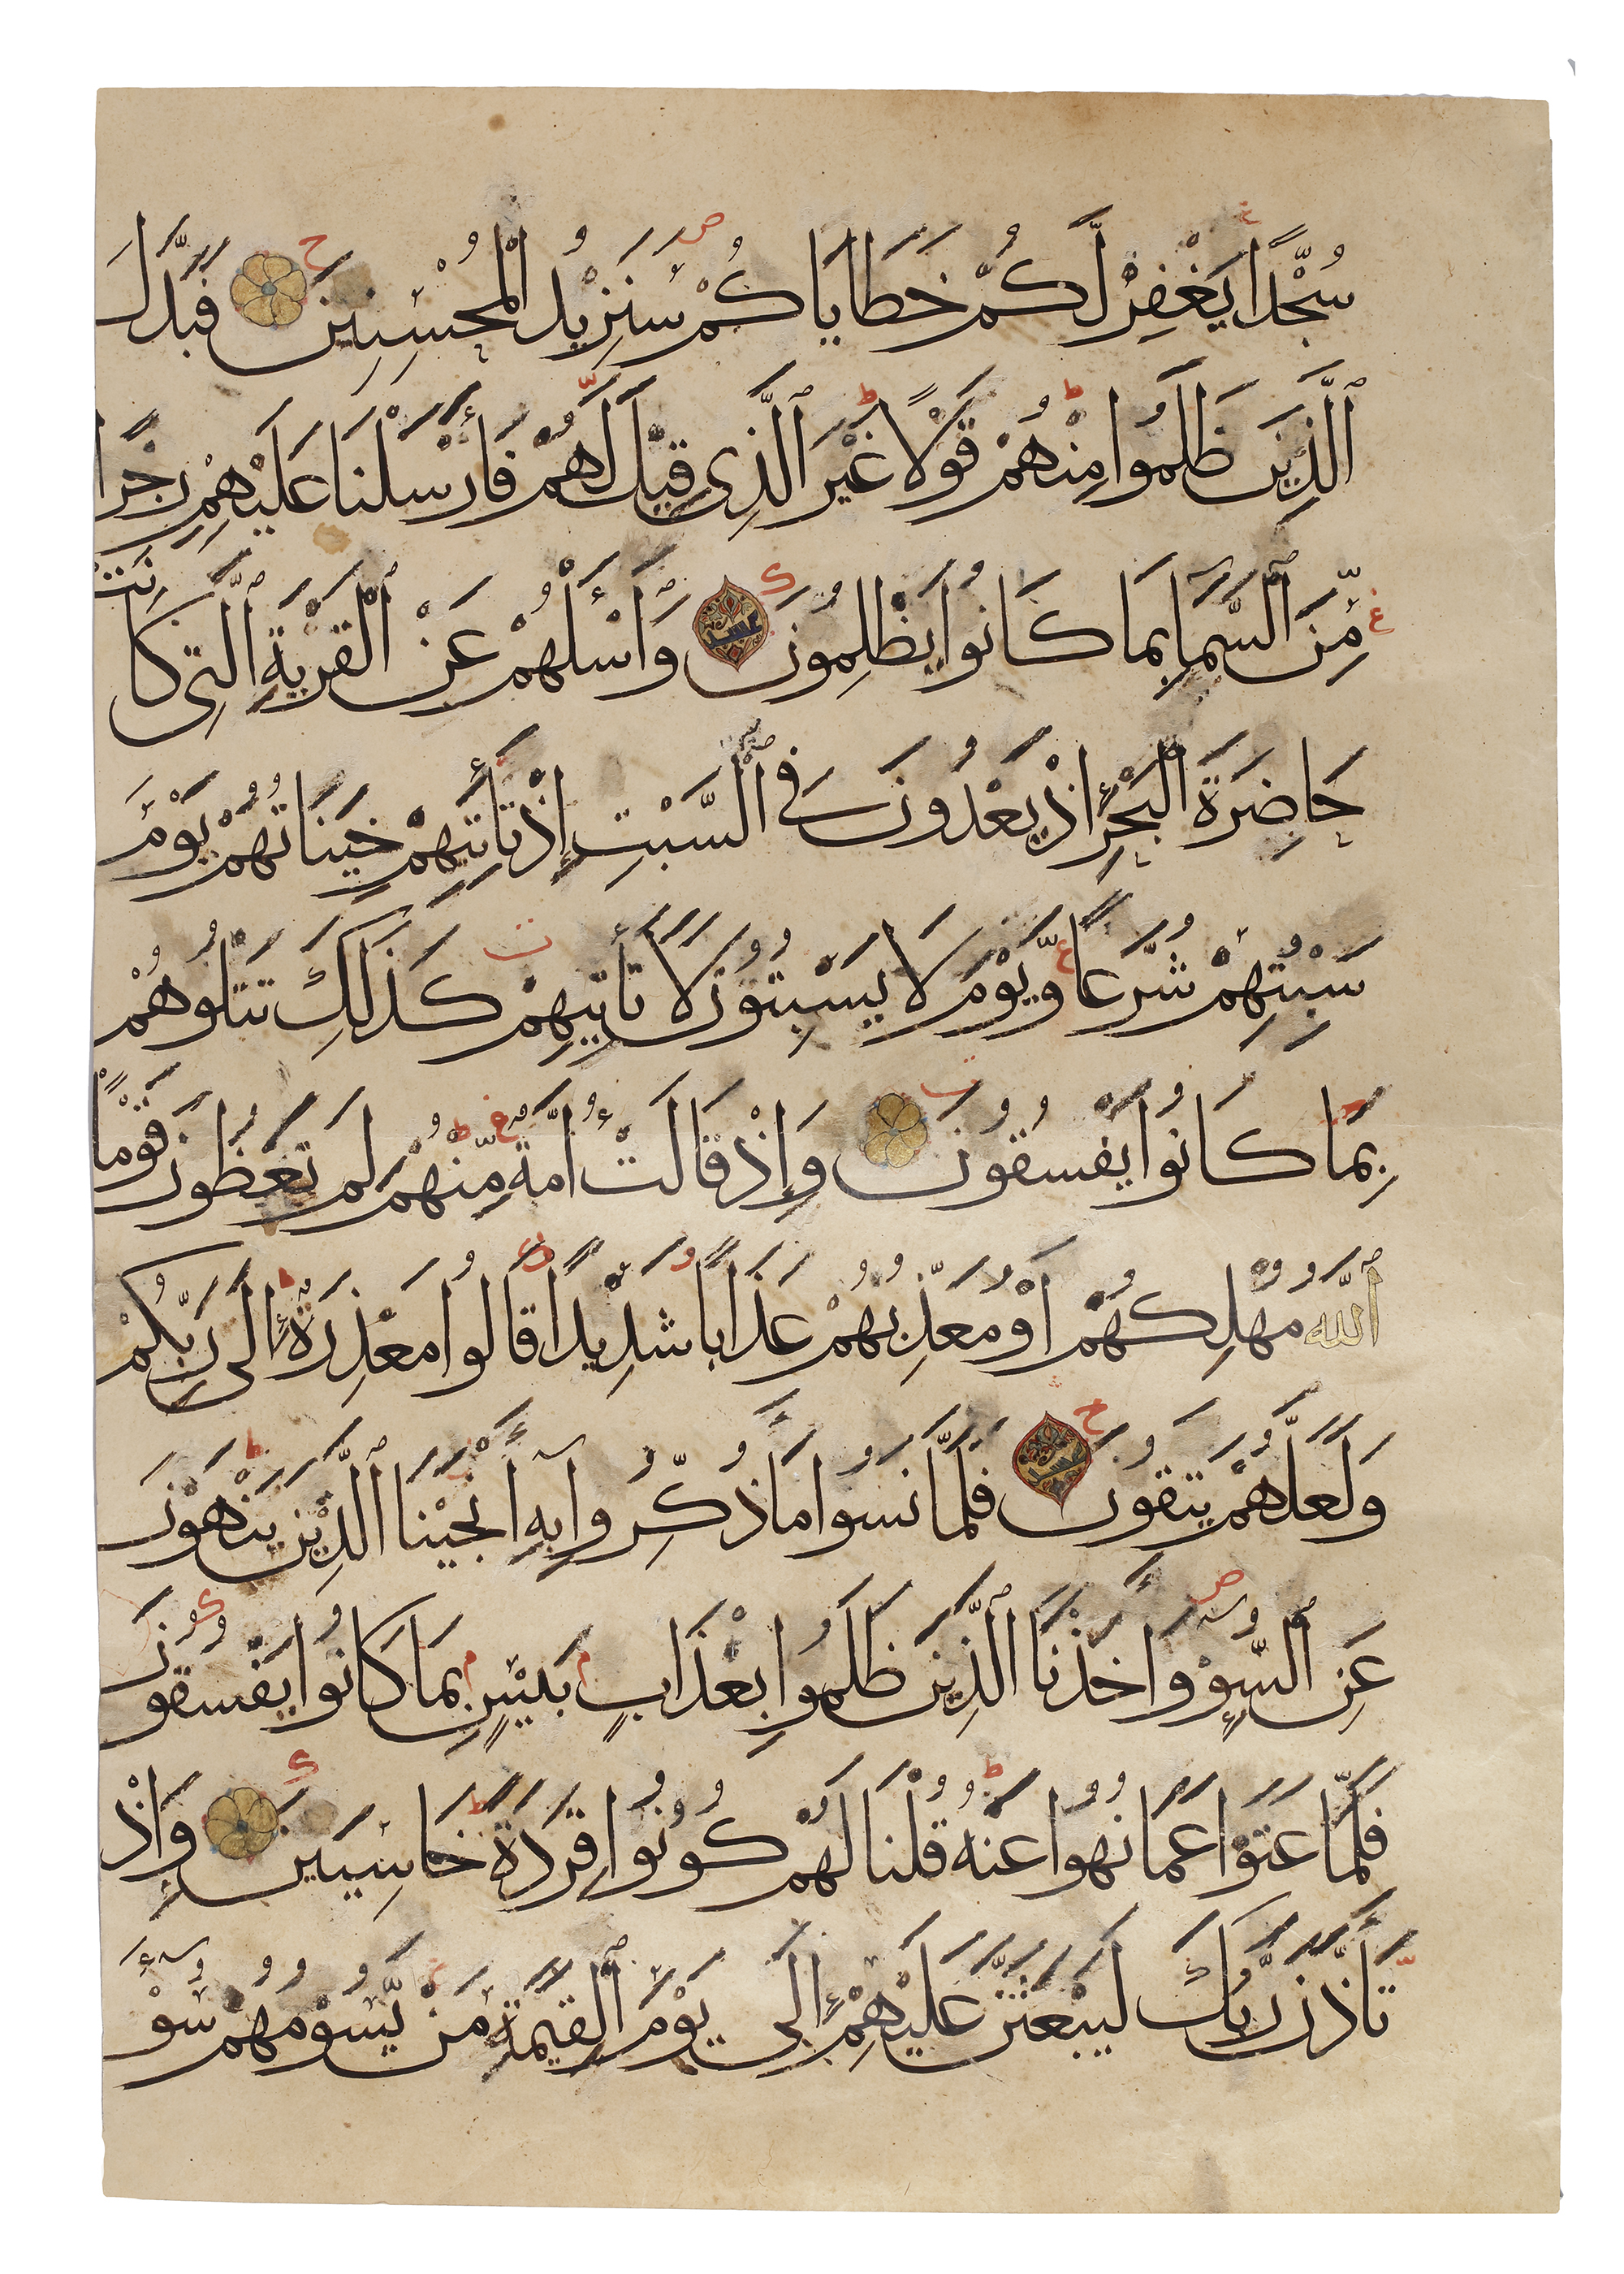 سُجَّدًا يَغْفِرْ لَّكُمْ خَطَايَاكُمْ سَنَزِيْدُ الْمُحْسِنِينَ فَبَدَّلَ
ٱلَّذِينَ ظَلَمُوا مِنْهُمْ قَوْلًا غَيْرَ ٱلَّذِى قِيْلَ لَهُمْ فَأَرْسَلْنَا عَلَيْهِمْ رِجْزًا
مِّنَ ٱلسَّمَاءِ بِمَا كَانُوا يَظْلِمُونَ وَاسْئَلْهُمْ عَنْ ٱلْقَرْيَةِ ٱلَّتِى كَانَتْ
حَاضِرَةَ الْبَحْرِ إِذْ يَعْدُونَ فِى ٱلسَّبْتِ إِذْ تَأْتِيهِمْ حِيتَانُهُمْ يَوْمَ
سَبْتِهِمْ شُرَّعًا وَّيَوْمَ لَا يَسْبِتُونَ لَا تَأْتِيهِمْ كَذَلِكَ نَبْلُوهُمْ
بِمَا كَانُوا يَفْسُقُونَ وَإِذْ قَالَتْ أُمَّةٌ مِّنْهُمْ لِمَ تَعِظُونَ قَوْمًا
ٱللَّهُ مُهْلِكُهُمْ أَوْ مُعَذِّبُهُمْ عَذَابًا شَدِيْدًا قَالُوا مَعْذِرَةً إِلَى رَبِّكُمْ
وَلَعَلَّهُمْ يَتَّقُونَ فَلَمَّا نَسُوا مَا ذُكِّرُوا بِهِ أَنْجَيْنَا ٱلَّذِيْنَ يَنْهَوْنَ
عَنِ ٱلسُّوءِ وَأَخَذْنَا ٱلَّذِيْنَ ظَلَمُوا بِعَذَابٍ بَئِيْسٍ بِمَا كَانُوا يَفْسُقُونَ
فَلَمَّا عَتَوْا عَمَّا نُهُوا عَنْهُ قُلْنَا لَهُمْ كُونُوا قِرَدَةً خَاسِئِينَ وَإِذْ
تَأَذَّنَ رَبُّكَ لَيَبْعَثَنَّ عَلَيْهِمْ إِلَى يَوْمِ ٱلْقِيٰمَةِ مَنْ يَّسُوْمُهُمْ سُوْءَ